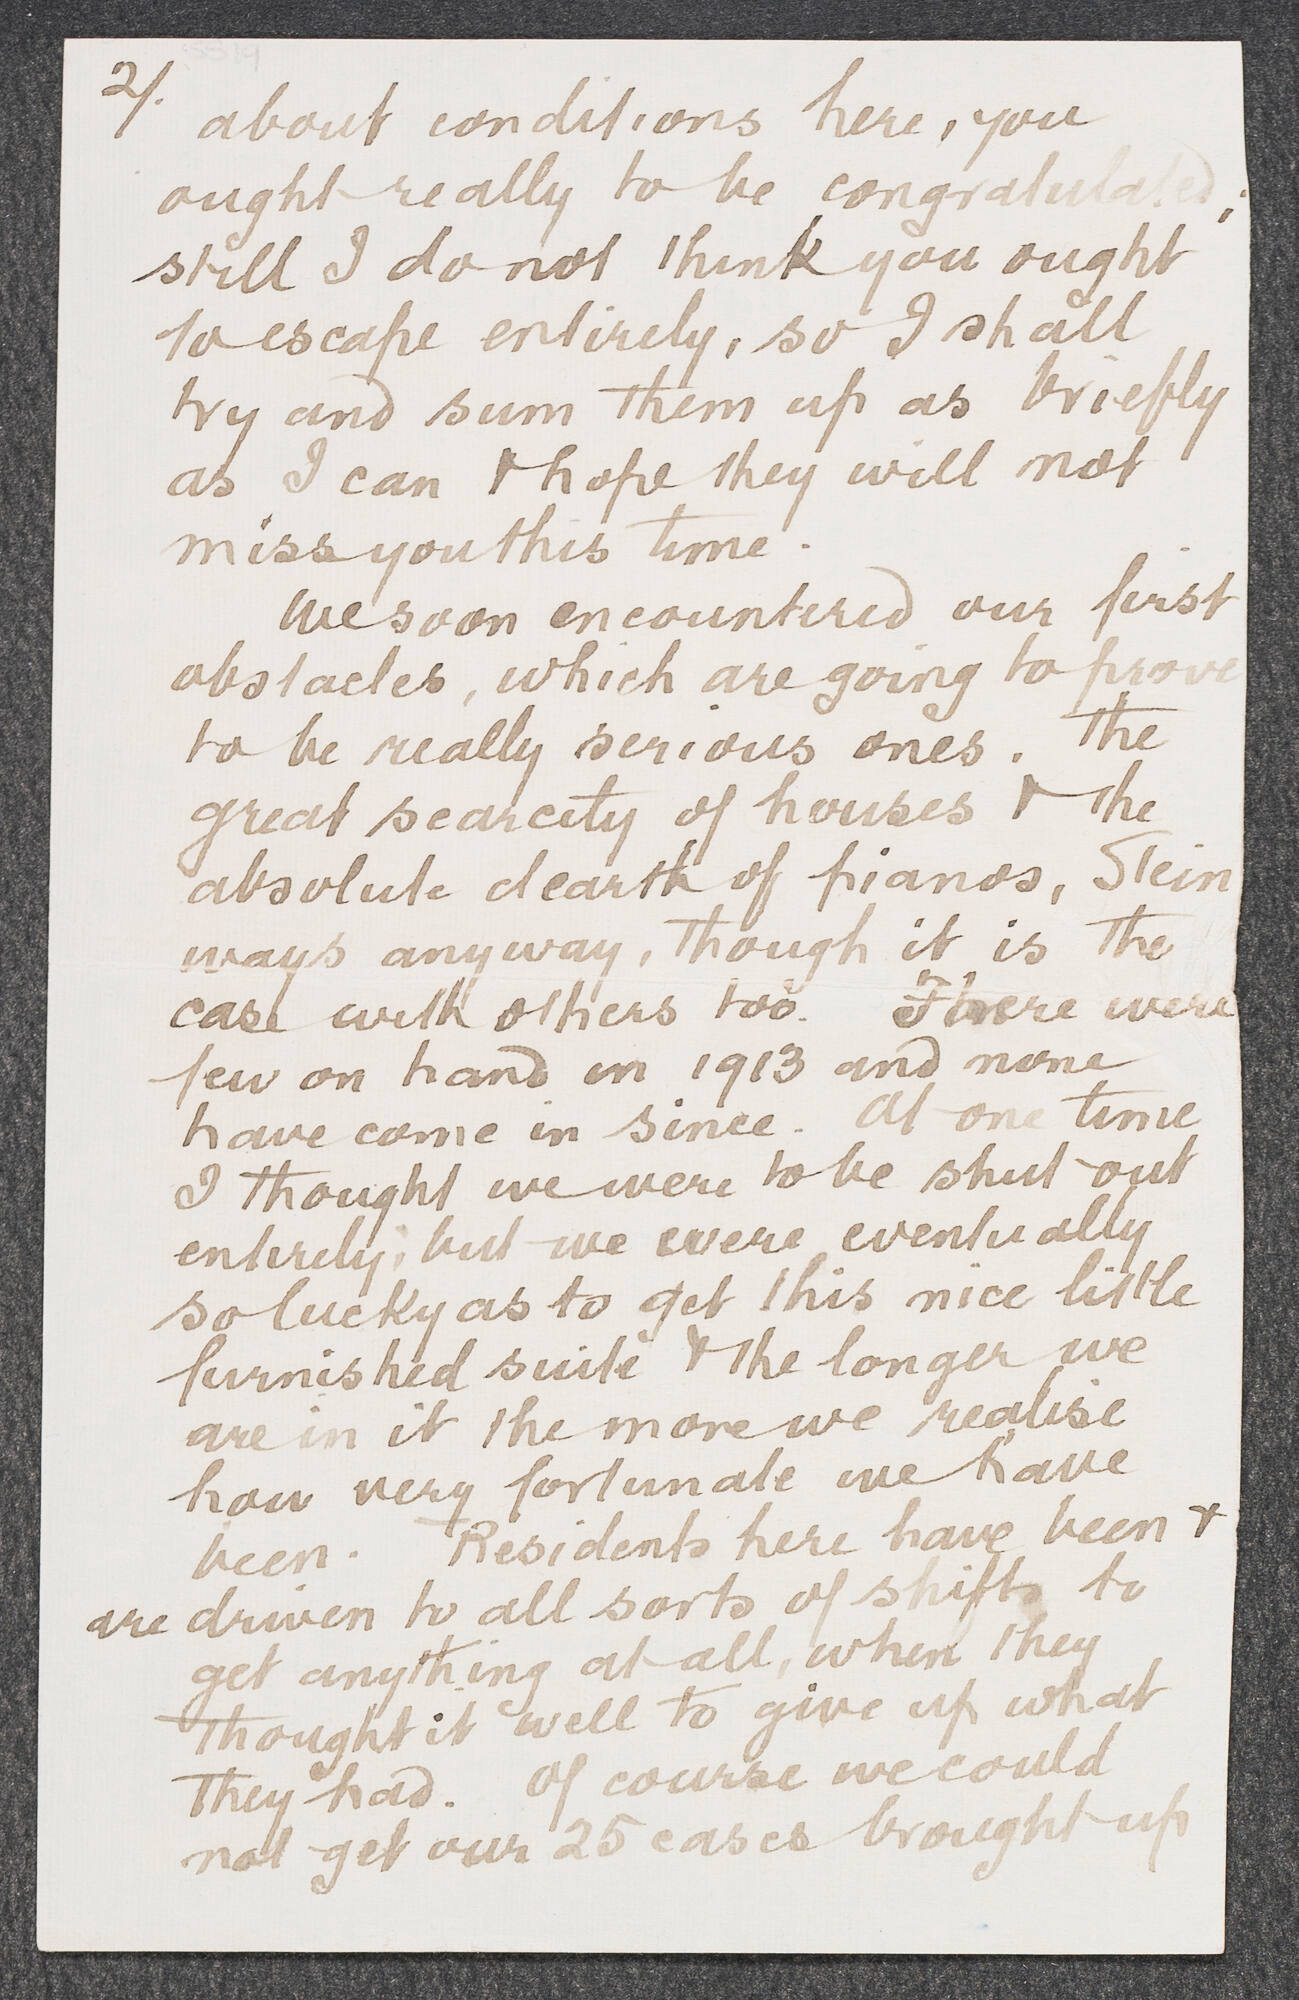 2/.
about conditions here, you
ought really to be congratulated;
still I do not think you ought
to escape entirely, so I shall
try and sum them up as briefly
as I can & hope they will not
miss you this time.
We soon encountered our first
obstacles, which are going to prove
to be really serious ones. The
great scarcity of houses & the
absolute dearth of pianos, Stein
ways anyway, though it is the
case with others too. There were
few on hand in 1913 and none
have come in since. At one time
I thought we were to be shut out
entirely; but we were eventually
so lucky as to get this nice little
furnished suite & the longer we
are in it the more we realise
how very fortunate we have
been. Residents here have been &
are driven to all sorts of shifts to
get anything at all, when they
thought it well to give up what
they had. Of course we could
not get our 25 cases brought up